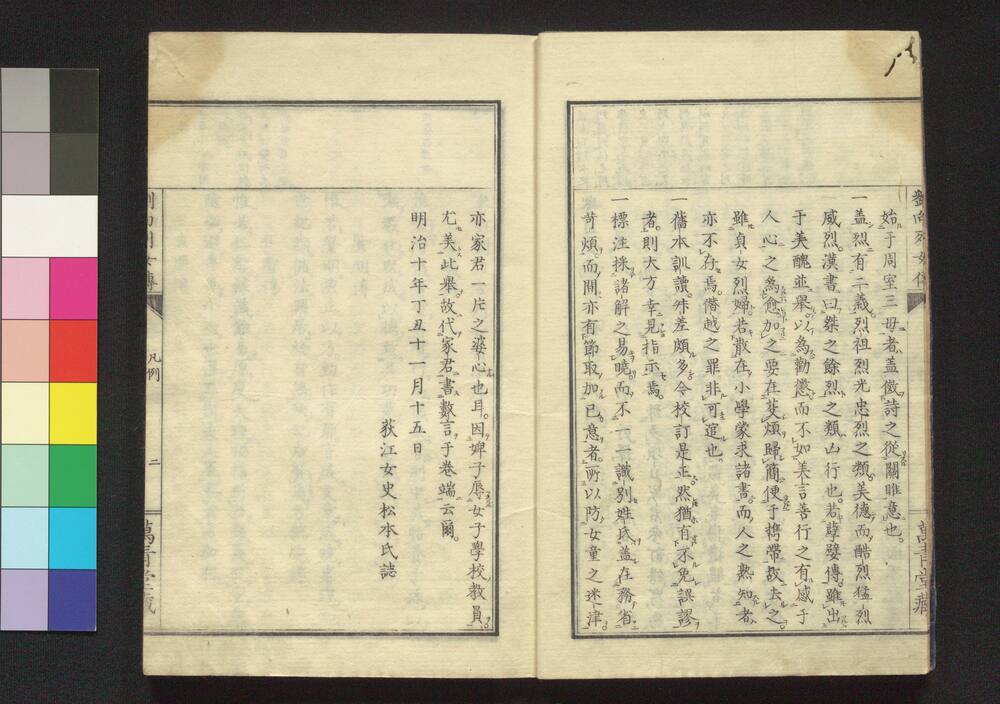 劉向列女傳
始于周室三母者蓋徵詩之從關雎意也。
一蓋烈有二義。烈祖烈光忠烈之類。美德而酷烈猛烈
威烈。漢書曰桀之餘烈之類凶行也。若孽嬖傳。雖出
于美醜並舉。以為勸懲而不如美言善行之有感于
人心之為愈加之要在芟煩歸簡便于携帶故去之
雖貞女烈婦若散在小學蒙求諸書而人之熟知者
亦不存焉。僭越之罪非可逭也。
一舊本訓讀舛差頗多。今校訂是正然猶有不免誤謬
者。則大方幸見指示焉。
一標注採諸解之易曉而不一一識別姓氏蓋在務省
苛煩。而間亦有節取加己意者所以防女童之迷津。
萬青堂藏
劉向列女傳
凡例
二
萬青堂藏
亦家君一片之婆心也耳。因婢子辱女子學校教員。
尤美此舉。故代家君書數言于卷端云爾。
明治十年丁丑十一月十五日
荻江女史松本氏誌